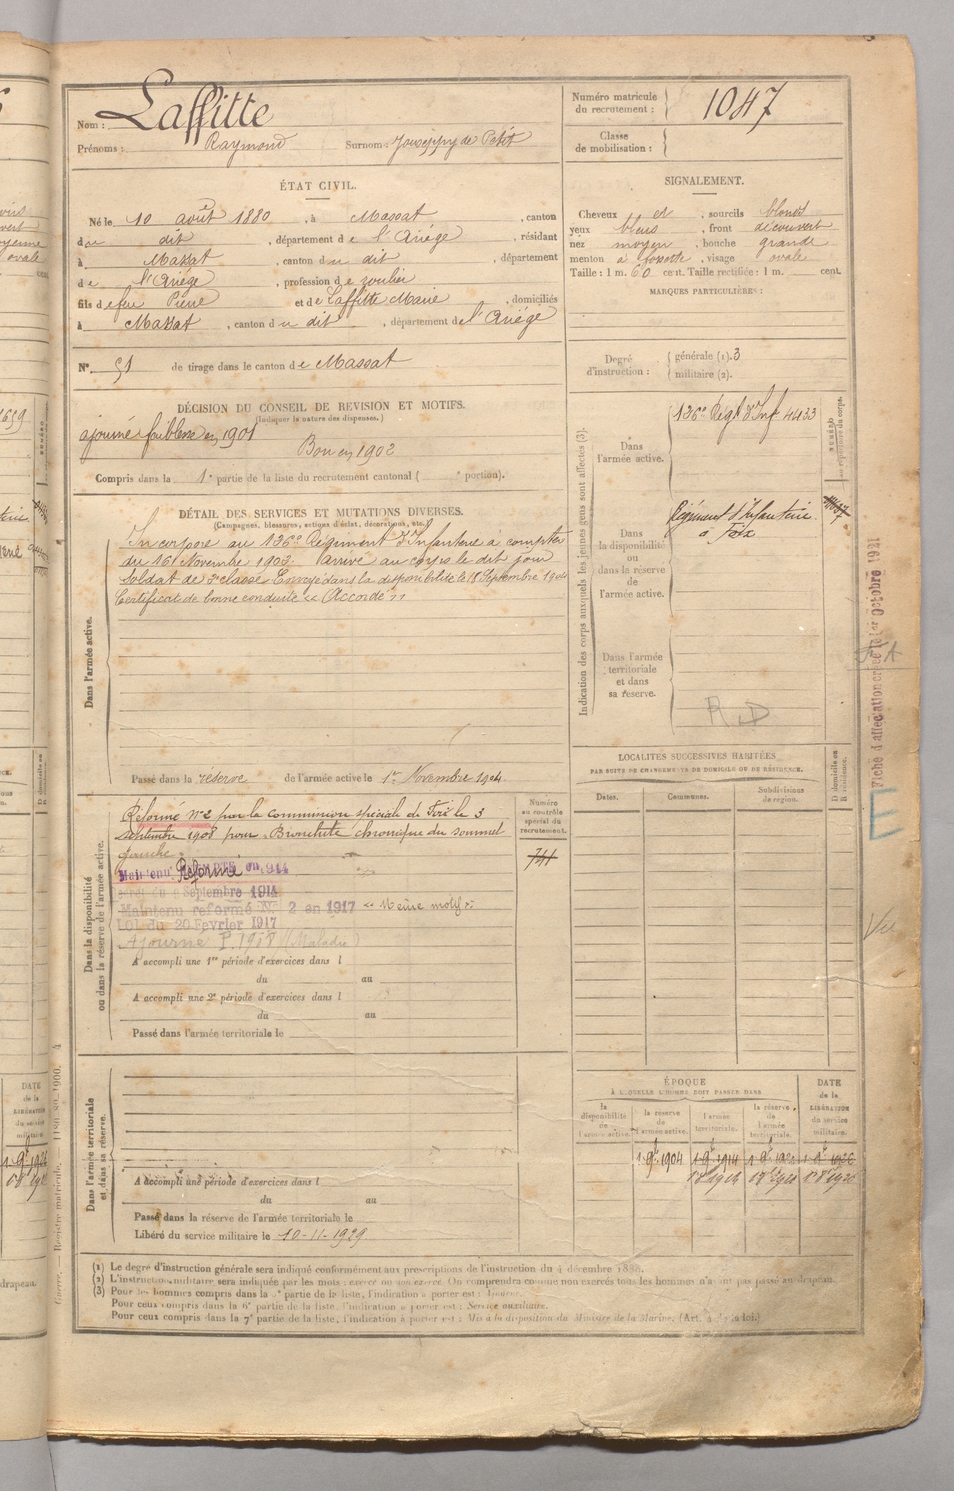 Nom : Laffitte
Prénoms : Raymond Surnom : de Petit
Numéro matricule du recrutement : 1047
Classe de mobilisation :
ÉTAT CIVIL.
Né le 10 août 1880, à Massat, canton
du dit, département de l'Ariège, résidant
à Massat, canton du dit, département
de l'Ariège, profession de
fils de feu Pierre et de Laffitte Marie, domiciliés
à Massat, canton du dit, département de l'Ariège
N° 51 de tirage dans le canton de Massat
SIGNALEMENT.
Cheveux et, sourcils blonds
yeux bleus, front découvert
nez moyen, bouche grande
menton à fossette, visage ovale
Taille : 1 m. 60 cent. Taille rectifiée : 1 m. cent.
MARQUES PARTICULIÈRES :
Degré d'instruction : générale (1). 3
militaire (2).
DÉCISION DU CONSEIL DE REVISION ET MOTIFS.
(Indiquer la nature des dispenses.)
ajourné faiblesse en 1901
Bon en 1902
Compris dans la 1e partie de la liste du recrutement cantonal ( e portion).
DÉTAIL DES SERVICES ET MUTATIONS DIVERSES.
(Campagnes, blessures, actions d'éclat, décorations, etc.)
Dans l'armée active.
Incorporé au 126e Régiment d'Infanterie à compter
du 16 Novembre 1903. Arrivé au corps le dit jour
Soldat de classe. Envoyé dans la disponibilité le 18 Septembre 1904
Certificat de bonne conduite « Accordé »
Passé dans la réserve de l'armée active le 1er Novembre 1904.
Indication des corps auxquels les jeunes gens sont affectés (3).
Dans l'armée active. 126e Régt d'Inf 4433
Dans la disponibilité ou dans la réserve de l'armée active. Régiment d'Infanterie
à Foix
Dans l'armée territoriale et dans sa réserve.
R D
NUMÉRO au répertoire du corps.
Fiche d'affectation créée le 1er Octobre 1921
Vu
LOCALITÉS SUCCESSIVES HABITÉES
PAR SUITE DE CHANGEMENTS DE DOMICILE OU DE RÉSIDENCE.
Dates. Communes. Subdivisions de region. D domicile ou R résidence.
Dans la disponibilité ou dans la réserve de l'armée active.
Réformé N° 2 par la commission spéciale de le 3
septembre 1908 pour Bronchite chronique du sommet
gauche
Maintenu Réformé en 1914
Septembre 1914
Maintenu réformé N° 2 en 1917 « Même motif »
Loi du 20 Février 1917
Ajourné P. 1908 (Maladie)
Numéro au contrôle spécial du recrutement.
741
A accompli une 1re période d'exercices dans l
du au
A accompli une 2e période d'exercices dans l
du au
Passé dans l'armée territoriale le
Dans l'armée territoriale et dans sa réserve.
A accompli une période d'exercices dans l
du au
Passé dans la réserve de l'armée territoriale le
Libéré du service militaire le 10-11-1929
ÉPOQUE
À LAQUELLE L'HOMME DOIT PASSER DANS
la disponibilité de l'armée active. la réserve de l'armée active. l'armée territoriale. la réserve de l'armée territoriale.
DATE de la LIBÉRATION du service militaire.
1 9bre 1904 1 9bre 1914
(1) Le degré d'instruction générale sera indiqué conformément aux prescriptions de l'instruction du 4 décembre
(2) L'instruction militaire sera indiquée par les mots : exercé ou non exercé. On comprendra comme non exercés tous les hommes n'ayant pas passé au drapeau.
(3) Pour les hommes compris dans la 2e partie de la liste, l'indication à porter est : Ajourné.
Pour ceux compris dans la 6e partie de la liste, l'indication à porter est : Service auxiliaire.
Pour ceux compris dans la 7e partie de la liste, l'indication à porter est : Mis à la disposition du Ministre de la Marine.